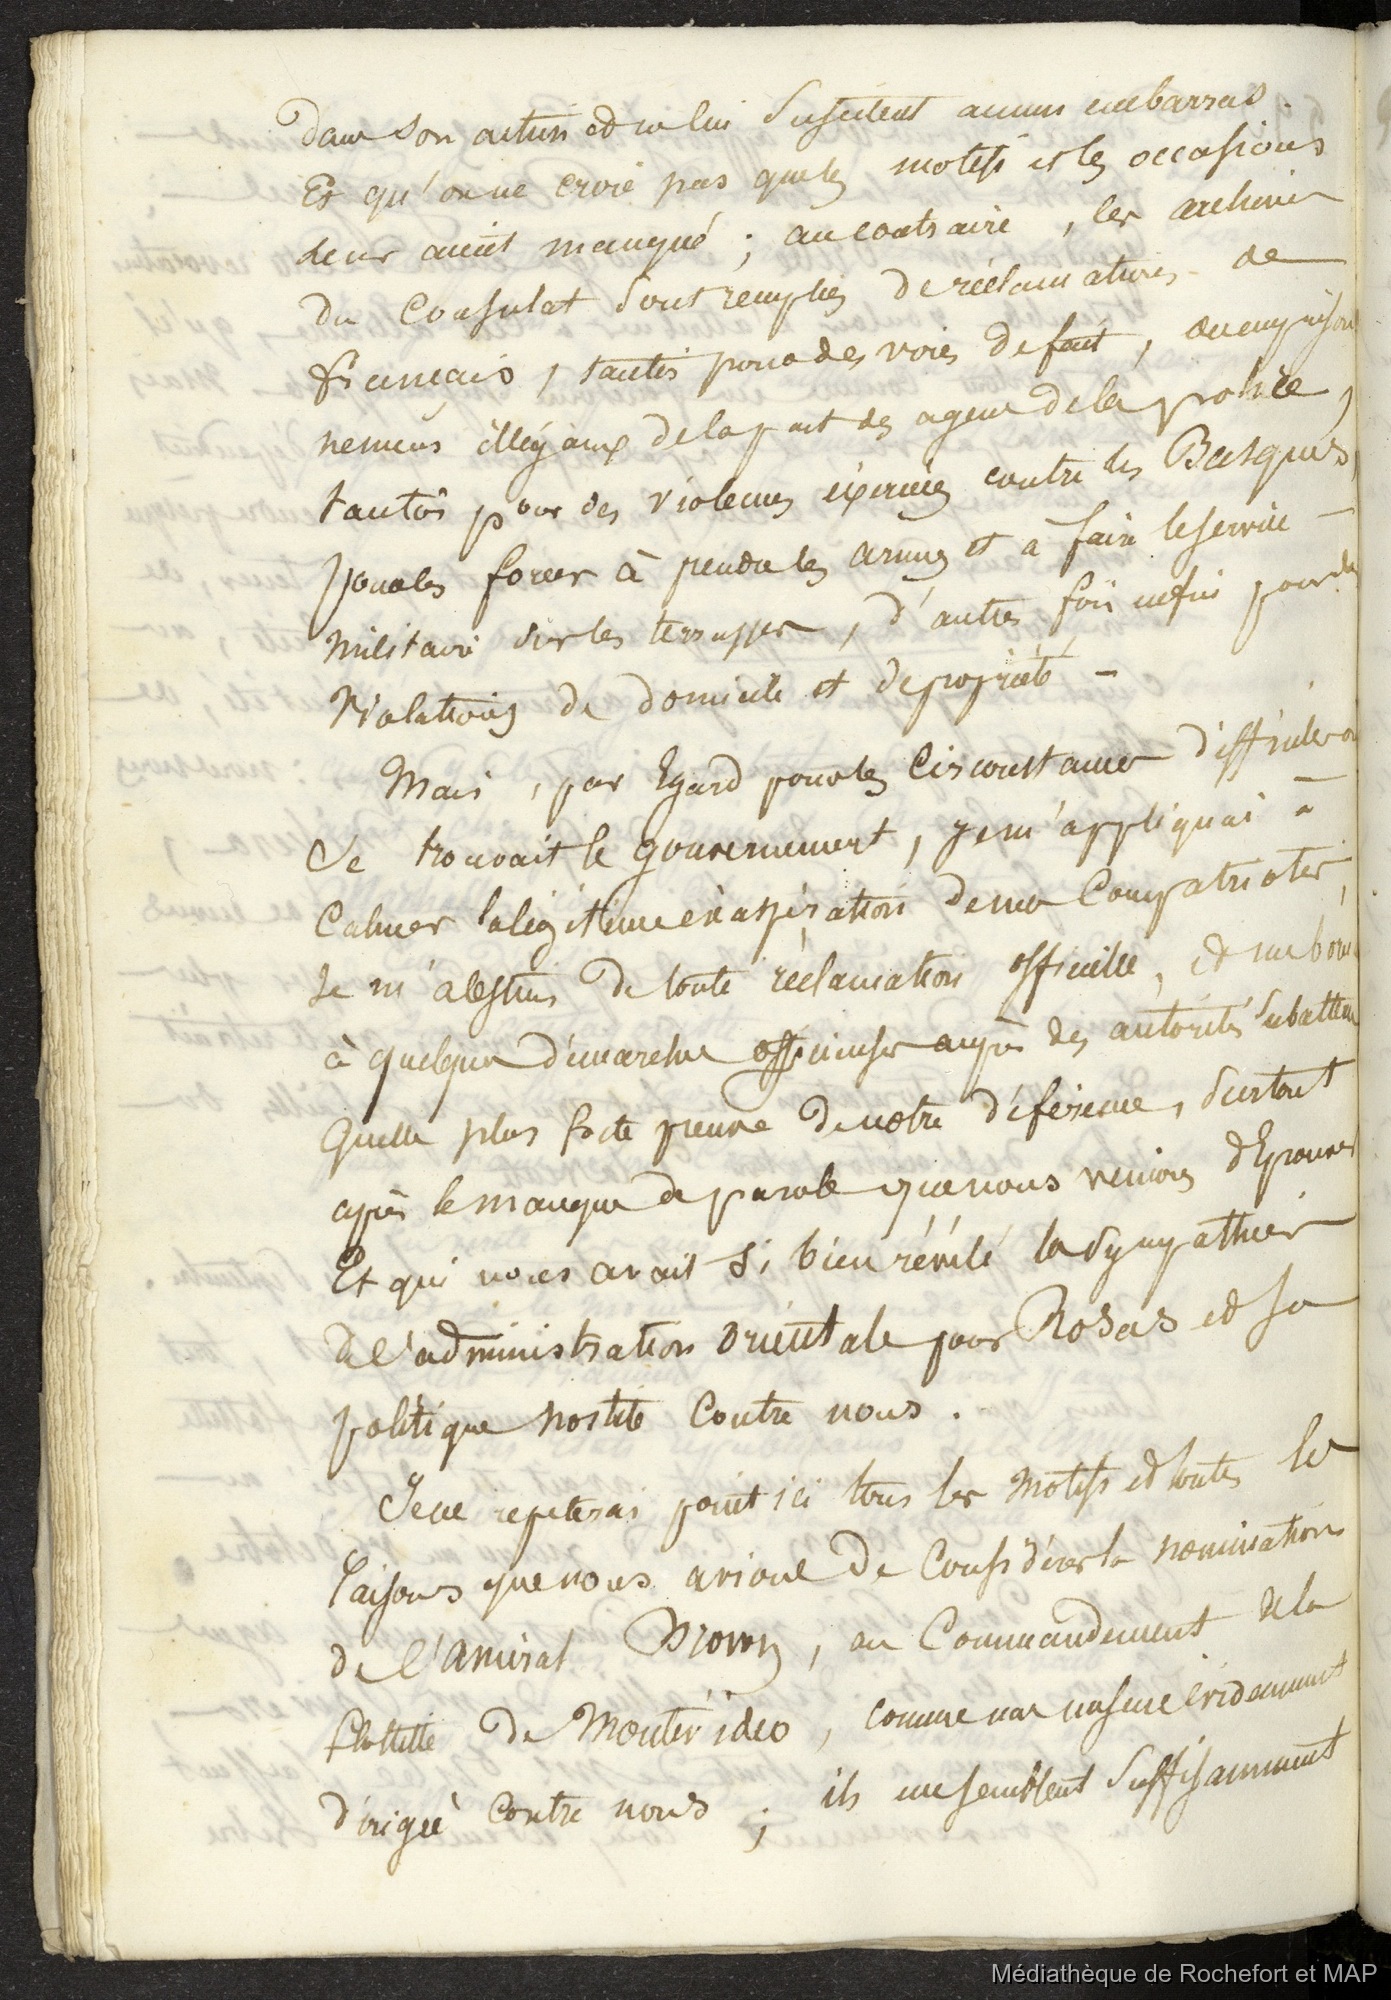 dans son action et ne lui suscitent aucun embarras.
Et qu'on ne croie pas que les motifs et les occasions
leur aient manqué ; au contraire, les archives
du Consulat sont remplies de réclamations de
français, tantôt pour des voies de fait, ou emprison
nemens illégaux de la part des agens de la police,
tantôt pour des violences exercées contre les Basques,
pour les forcer à prendre les armes et à faire le service
militaire sur les terrasses, d'autres fois enfin pour des
violations de domicile et de propriété –
Mais, par Egard pour les Circonstances difficiles où
se trouvait le gouvernement, je m'appliquai à
Calmer la légitime exaspération de mes Compatriotes,
Je m'abstins de toute réclamation officielle, et me bornai
à quelques démarches officieuses auprès des autorités subalternes
Quelle plus forte preuve de notre déférence, surtout
après le manque de parole que nous venions d'Eprouver
Et qui nous avait si bien révélé la sympathie
de l'administration orientale pour Rosas et sa
politique hostile Contre nous.
Je ne répéterai point ici tous les motifs et toutes les
raisons que nous avions de Considérer la nomination
de l'Amiral Brown, au Commandement de la
flottille de Montévideo, comme une mesure évidemment
dirigée contre nous ; ils me semblent suffisamment
Médiathèque de Rochefort et MAP